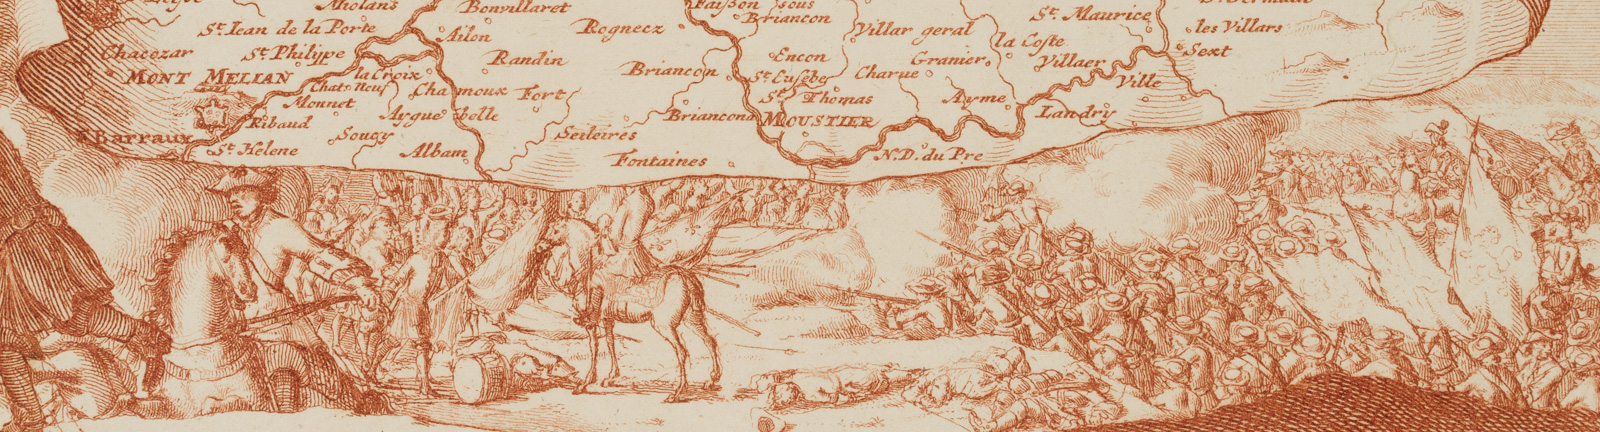 Miolans
Bonvillaret
sous
Briancon
St. Maurice
les Villars
Sext
St. Iean de la Porte
Ailon
Rognecz
Villar geral
la Coste
Chacozar
St. Philype
Randin
Encon
Granier
Villaer
MONT MELIAN
la Croix
Briancon
St. Eusebe
Charue
Ville
Chat. Neuf
Chamoux Fort
St. Thomas
Ayme
Landry
Monnet
Aygue belle
Briancona
MOUSTIER
Ribaud
Soucy
Seiloires
F. Barraux
St. Helene
Albam
Fontaines
N.D. du Pre